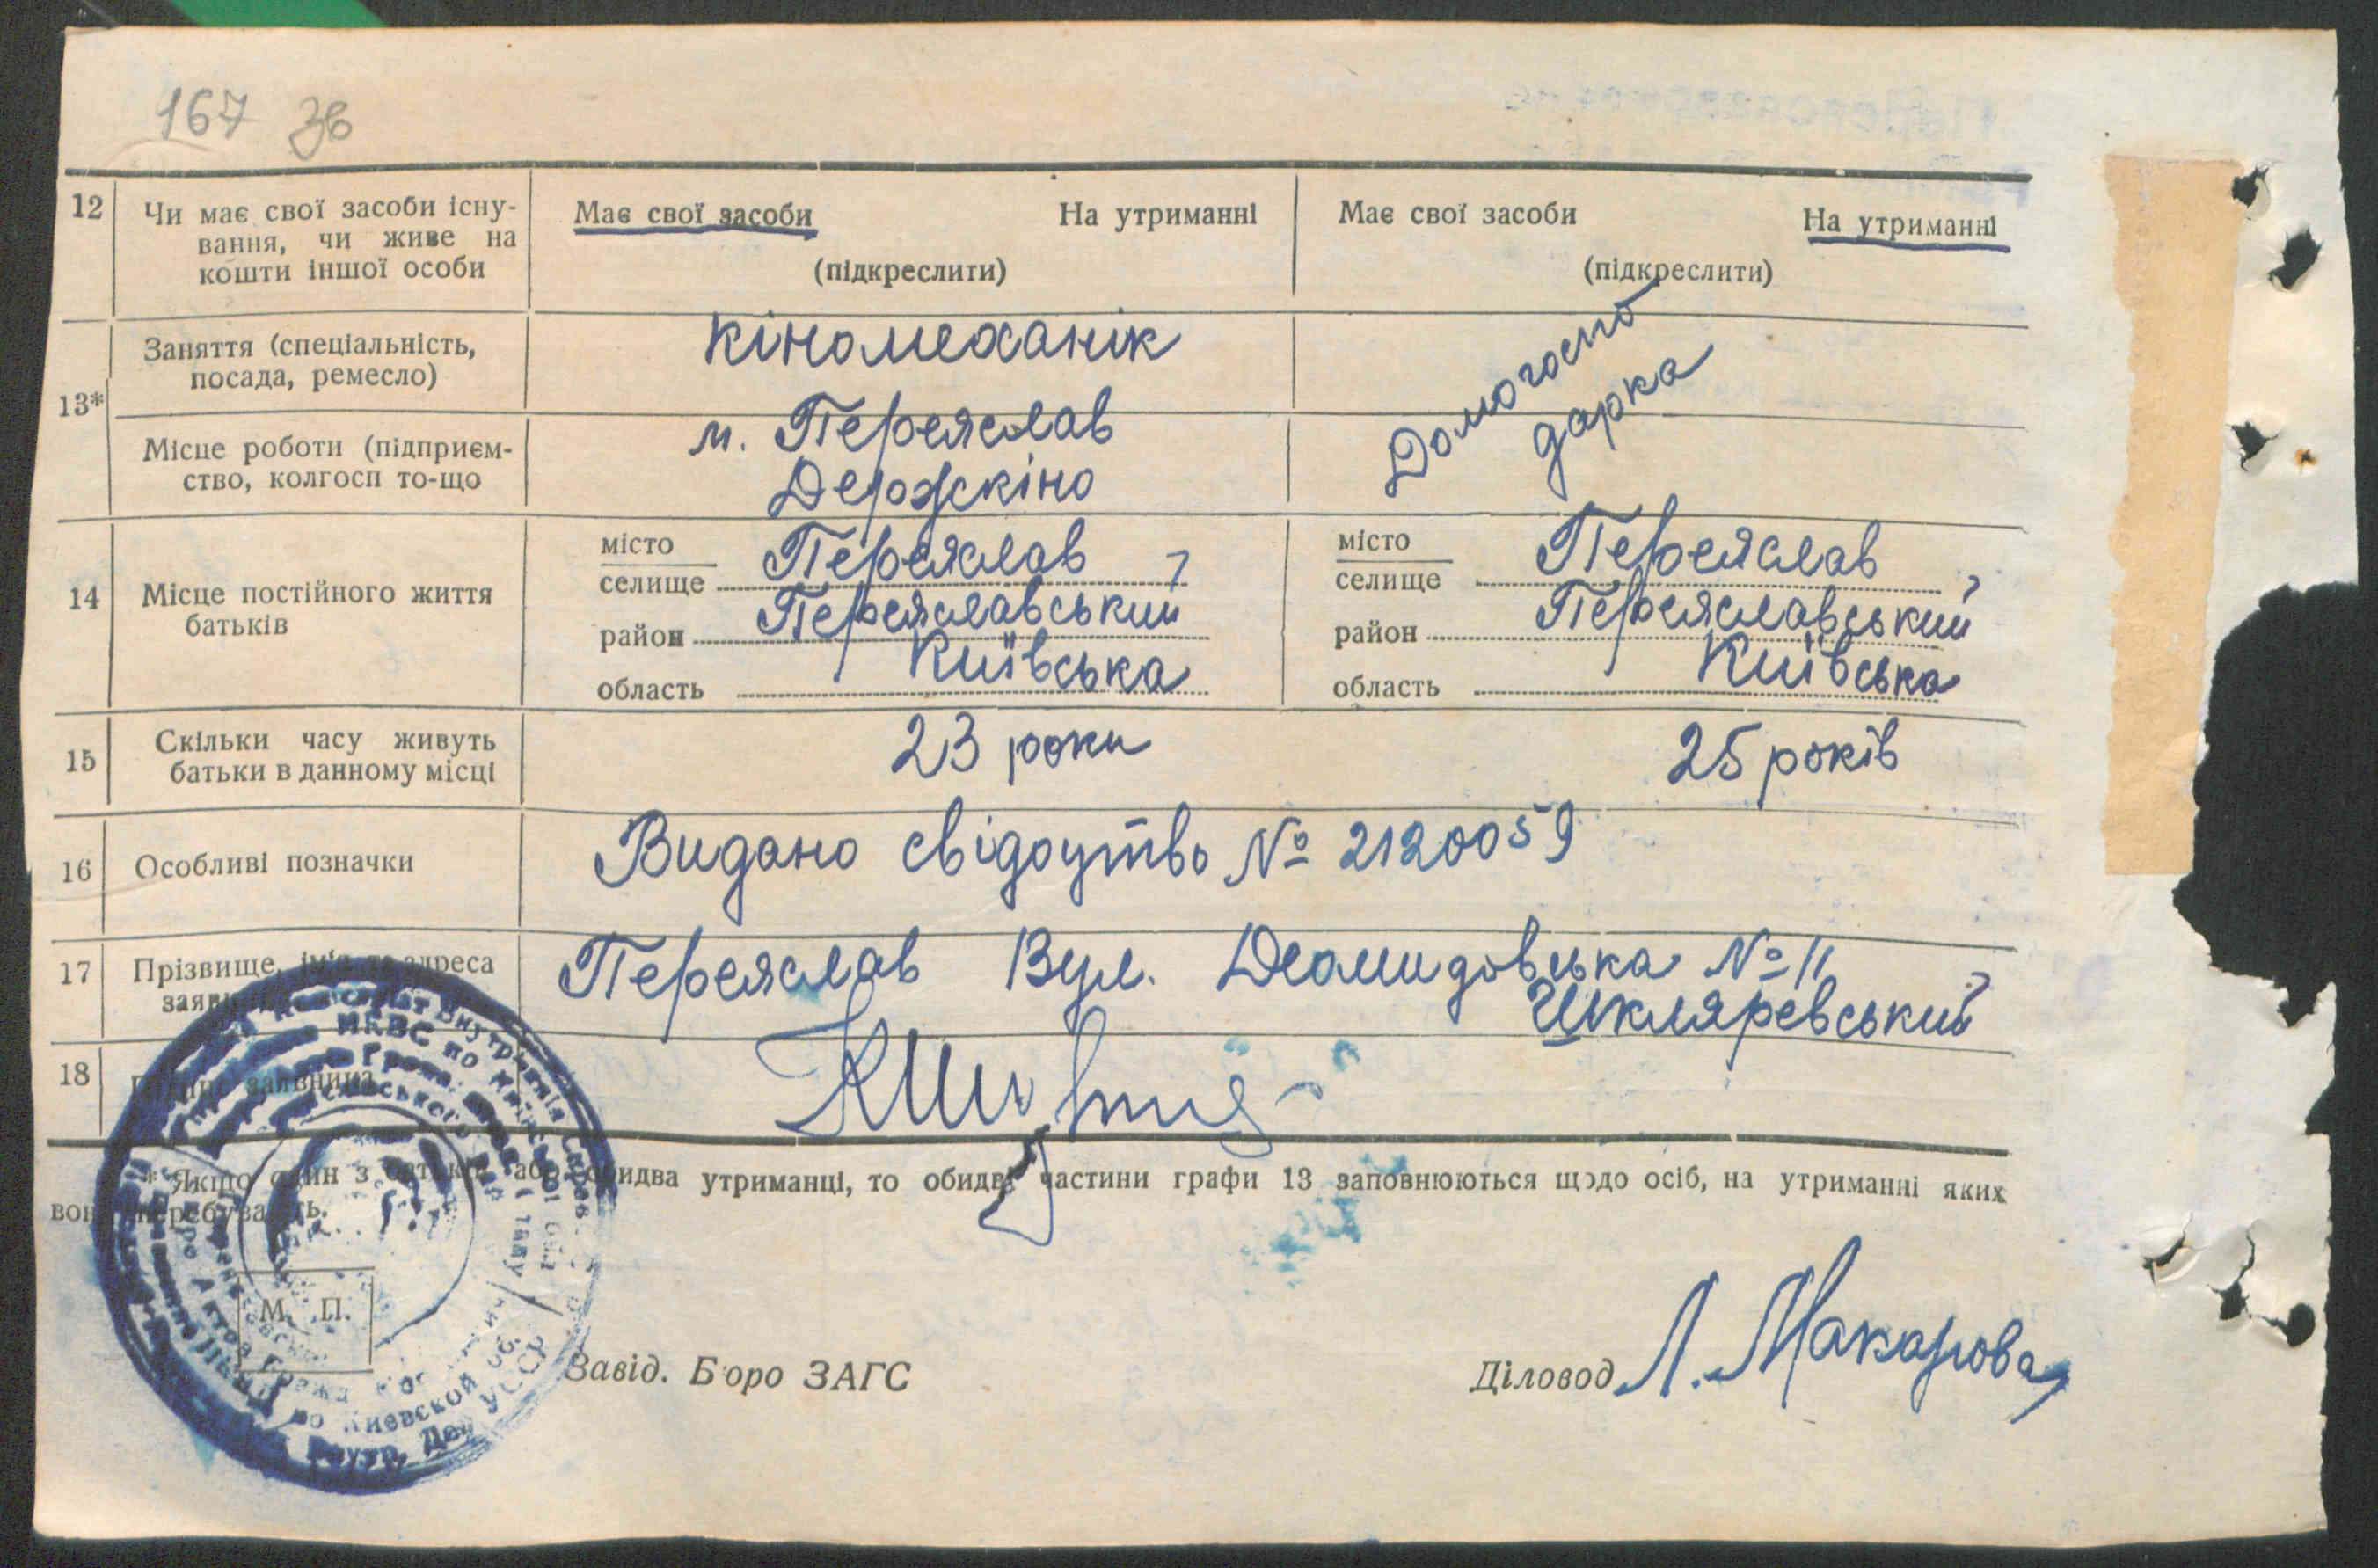 167 зв
12 Чи має свої засоби існу-
вання, чи живе на
кошти іншої особи
Має свої засоби На утриманні
(підкреслити)
Має свої засоби На утриманні
(підкреслити)
13*
Заняття (спеціальність,
посада, ремесло)
кіномеханік
Домогоспо
дарка
Місце роботи (підприєм-
ство, колгосп то-що
м. Переяслав
Держкіно
14 Місце постійного життя
батьків
місто
селище Переяслав,
район Переяславський
область Київська
місто
селище Переяслав,
район Переяславський
область Київська
15 Скільки часу живуть
батьки в данному місці
23 роки
25 років
16 Особливі позначки
Видано свідоцтво № 2120059
17 Прізвище, ім'я та адреса
Переяслав Вул. Деомидовська № 11,
Шкляревський
18
заявника
* Якщо один з батьків або обидва утриманці, то обидві частини графи 13 заповнюються щодо осіб, на утриманні яких
вони перебувають.
М. П.
Завід. Бюро ЗАГС
Діловод Л. Макарова